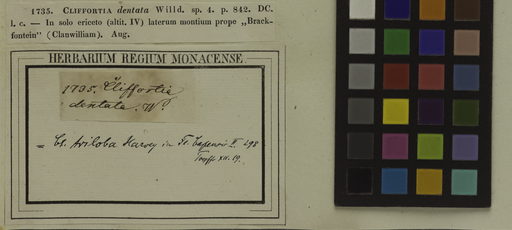 1735. CLIFFORTIA dentata Willd. sp. 4. p. 842. DC.
l. c. — In solo ericeto (altit. IV) laterum montium prope „Brack-
fontein” (Clanwilliam). Aug.
HERBARIUM REGIUM MONACENSE.
1735. Cliffortia
dentata. W.
= Cl. triloba Harvey in Fl. Capensis II. 298